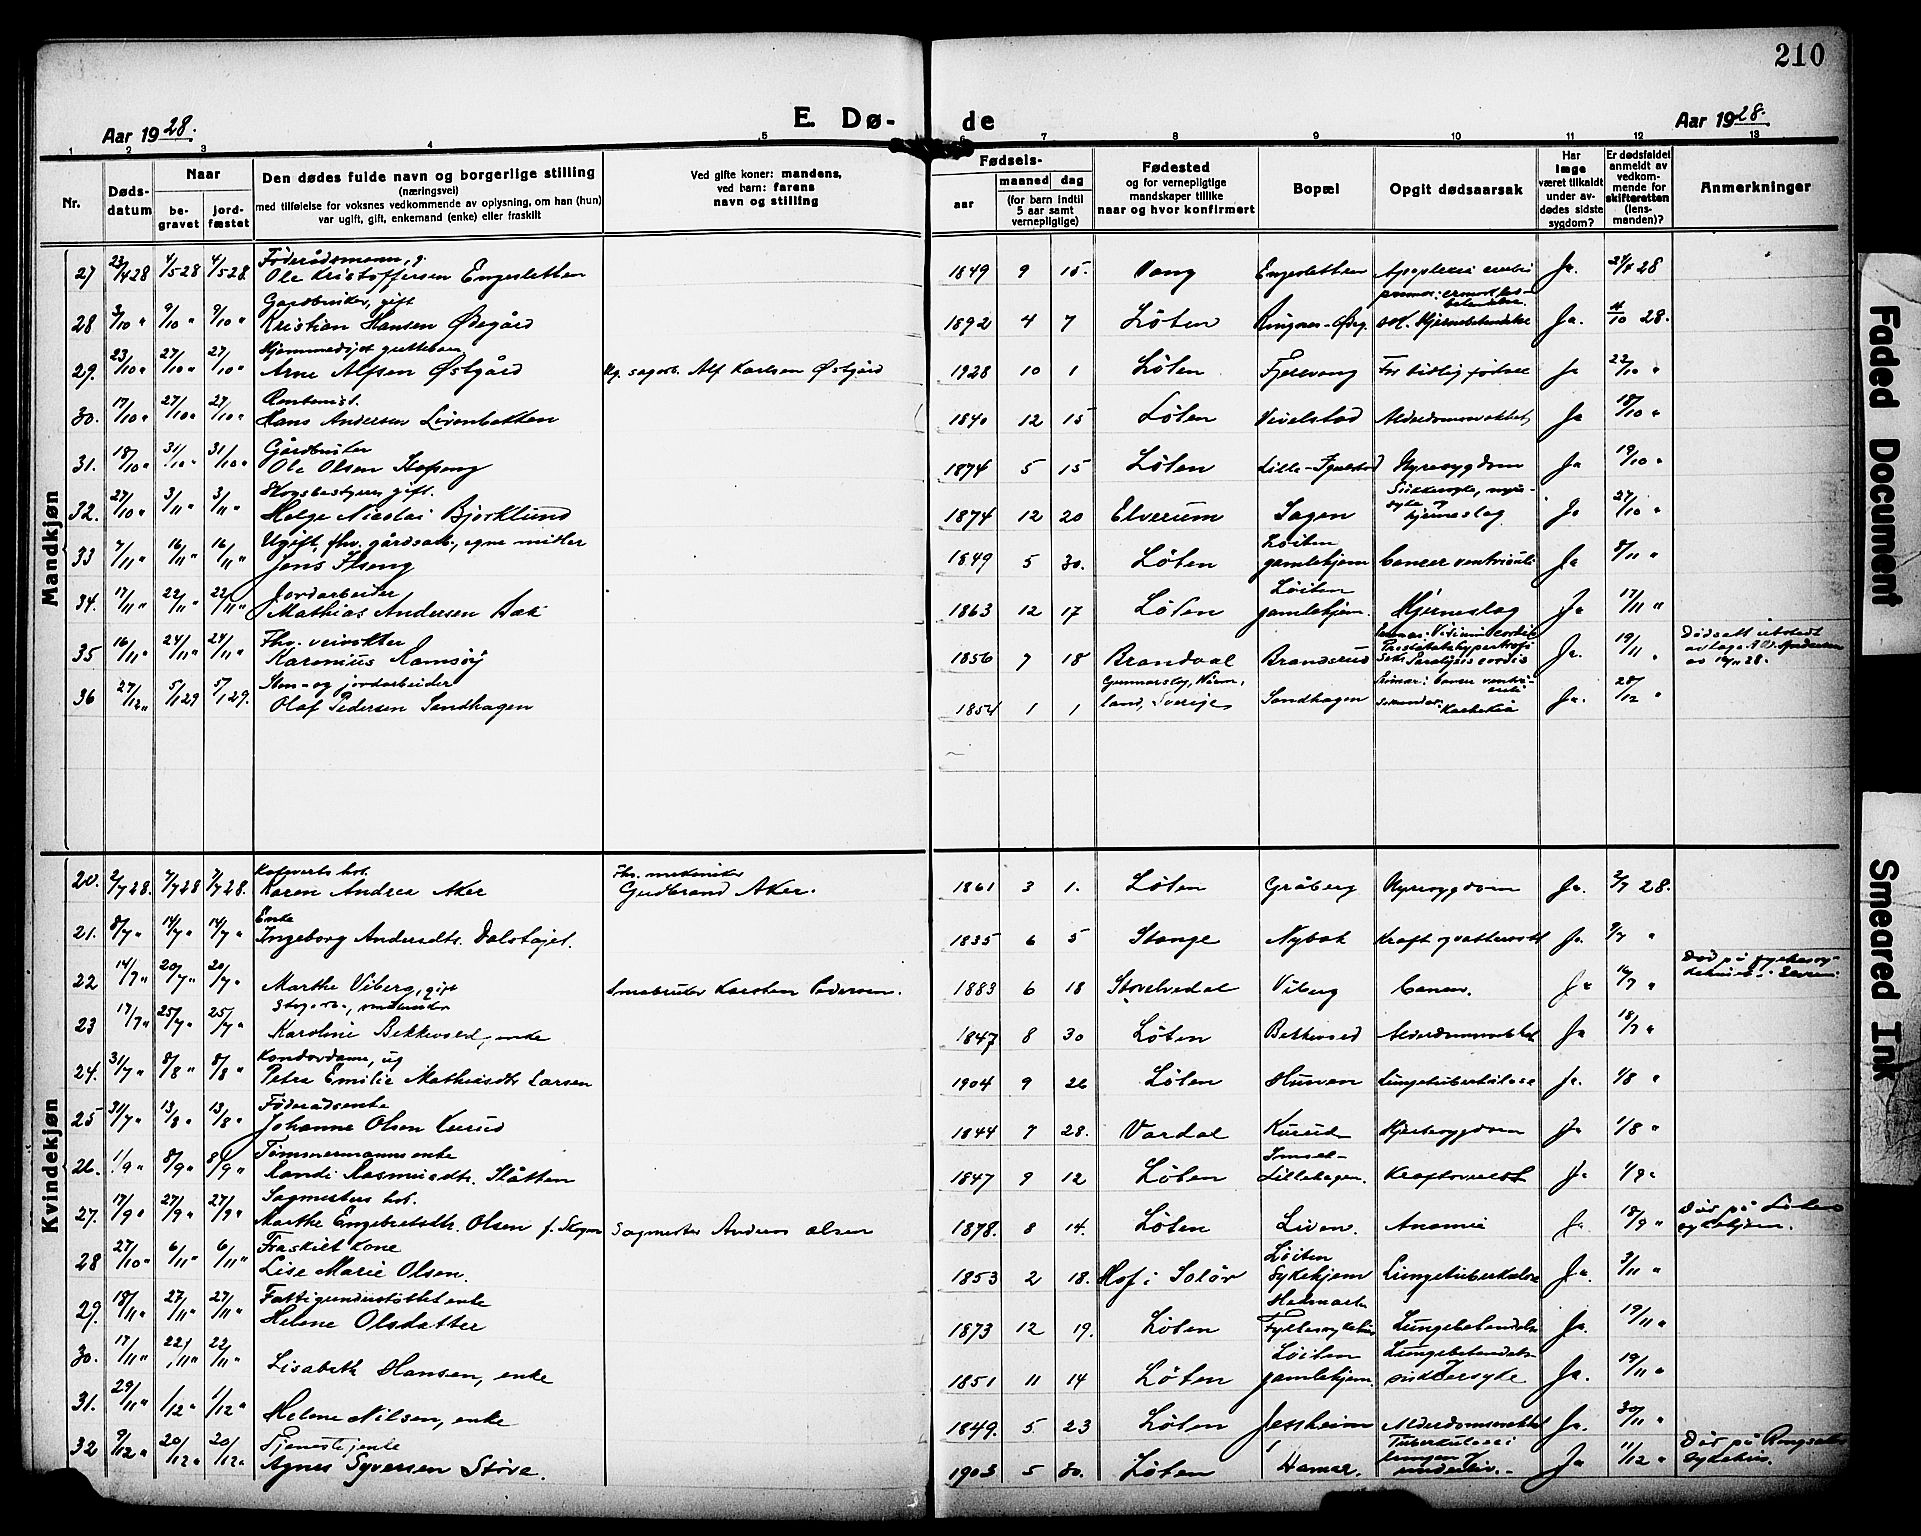 210
Aar 1928.
E. Dø-
de
Aar 1928.
1 2 3 4 5 6 7 8 9 10 11 12 13
Nr.
Døds-datum
Naar
be-gravet
jord-fæstet
Den dødes fulde navn og borgerlige stilling
(næringsvei)
med tilføielse for voksnes vedkommende av oplysning, om han (hun)
var ugift, gift, enkemand (enke) eller fraskilt
Ved gifte koner: mandens,
ved barn: farens
navn og stilling
Fødsels-
aar
maaned dag
(for barn indtil
5 aar samt
vernepligtige)
Fødested
og for vernepligtige
mandskaper tillike
naar og hvor konfirmert
Bopæl
Opgit dødsaarsak
Har
læge
været tilkaldt
under av-
dødes sidste
sygdom?
Er dødsfaldet
anmeldt av
vedkom-
mende for
skifteretten
(lens-
manden)?
Anmerkninger
Mandkjøn
27 23/4 28 4/5 28 4/5 28. Føderådsmann, g. Ole Kristoffersen Engesletten 1849 9 15. Vang Engesletten Apoplexia Ja. 28
28 3/10 " 9/10 " 9/10 " Gardbruker, gift Kristian Hansen Ødegård 1892 4 7 Løten Hjernebetendelse Ja. 28.
29. 23/10 " 27/10 " 27/10 " Hjemmedøpt guttebarn Arne Alfsen Østgård Alf Karlsen Østgård 1928 10 1 Løten For tidlig født Ja 22/10 "
30. 17/10 " 27/10 " 27/10 " Hans Andersen 1840 12 15 Løten Vivelstad Alderdomssvakhet Ja 18/10 "
31. 18/10 " 31/10 " 31/10 " Gårdbruker Ole Olsen 1874 5 15 Løten Nyresygdom Ja 19/10 "
32. 27/10 " 3/11 " 3/11 " Skogbestyrer, gift. Helge Nicolai Bjørklund 1874 12 20 Elverum Sagen Sukkersyke, og hjerneslag Ja 27/10 "
33 7/11 " 16/11 " 16/11 " Ugift, fhv. gårdsarb., egne midler Jens Ilseng 1849 5 30. Løten Løiten gamlehjem Cancer ventriculi Ja 8/11 "
34. 17/11 " 22/11 " 22/11 " Jordarbeider Mathias Andersen 1863 12 17 Løten Løiten gamlehjem. Hjerneslag Ja 17/11 "
35 16/11 " 24/11 " 24/11 " Fhv. veivokter Karenius Ramsøy 1856 7 18 Brandval Brandsrud Ja. 19/11 " Dødsatt. utstedt av læge
36 27/12 " 5/1 29 5/1 29. Sten- og jordarbeider Olaf Pedersen Sandhagen 1854 1 1 Gunnarskog, Värmland, Sverige Sandhagen Ja. 28/12 "
Kvindekjøn
20. 2/7 28. 7/7 28 7/7 28. Karen Andrea Aker Fhv. mekaniker Gudbrand Aker. 1861 3 1. Løten Gråberg Nyresygdom Ja. 2/7 28.
21. 8/7 " 14/7 " 14/7 " Enke Ingeborg Andersdtr. 1835 6 5 Stange Nybak Ja. 9/7 "
22 14/7 " 20/7 " 20/7 " Marthe Viberg, gift Småbruker Karsten Pedersen. 1883 6 18 Storelvedal Viberg Cancer. Ja 16/7 "
23 17/7 " 25/7 " 25/7 " Karoline Bekkevold, enke 1847 8 30 Løten Bekkevold Alderdomssvakhet Ja 18/7 "
24. 31/7 " 8/8 " 8/8 " Kontordame, ug Petra Emilie Mathisdtr Larsen 1904 9 26 Løten Lungetuberkulose Ja. 1/8 "
25 31/7 " 13/8 " 13/8 " Føderådsenke Johanne Olsen Kurud 1844 7 28. Vardal Kurud Hjertesygdom Ja 1/8 "
26. 1/9 " 8/9 " 8/9 " Tømmermanns enke Randi Rasmusdtr. Slåtten 1847 9 12 Løten Lillehagen. Ja 1/9 "
27. 17/9 " 27/9 " 27/9 " Sagmesters hst. Marthe Engebretsdtr. Olsen f. Skogen Sagmester Anders Olsen 1878. 8 14. Løten Liven. Anæmi Ja 18/9 " Død på Løten sykehjem.
28 27/10 " 6/11 " 6/11 " Fraskilt kone Lise Marie Olsen. 1853 2 18. Hof i Solør Løiten Sykehjem Lungetuberkulose Ja. 3/11 "
29. 18/11 " 27/11 " 27/11 " Fattigunderstøttet enke Helene Olsdatter 1873 12 19. Løten Hedmark Fylkessykehus Lungebetendelse Ja. 19/11 "
30. 17/11 " 22/11 " 22/11 " Lisabeth Hansen, enke 1851 11 14 Løten Løiten gamlehjem. Lungebetendelse sukkersyke Ja. 19/11 "
31. 29/11 " 1/12 " 1/12 " Helene Nilsen, enke 1849. 5 23 Løten Jessheim Alderdomssvakhet Ja. 30/11 "
32 9/12 " 20/12 " 20/12 " Tjenestejente Agnes Syversen Støve. 1903 5 30. Løten Hamar. Tuberkulose i lungen og underliv. Ja 11/12 " Død på sykehus.
Faded Document
Smeared Ink